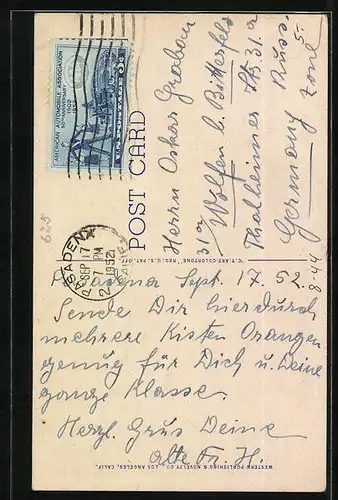 AMERICAN AUTOMOBILE ASSOCIATION
50TH ANNIVERSARY
1902
1952
3¢
U.S. POSTAGE
PASADENA
SEP 17
7 PM
1952
CALIF.
POST CARD
Herrn Oskar Grabow
31a Wolfen b. Bitterfeld
Thalheimer Str. 31a
Germany Russ.
Zone
"C.T. ART-COLORTONE" REG. U.S. PAT. OFF.
8-44
625
Pasadena Sept. 17. 52.
Sende Dir hierdurch
mehrere Kisten Orangen
genug für Dich u. Deine
ganze Klasse.
Herzl. Grus Deine
alte Fr. H.
WESTERN PUBLISHING & NOVELTY CO., LOS ANGELES, CALIF.